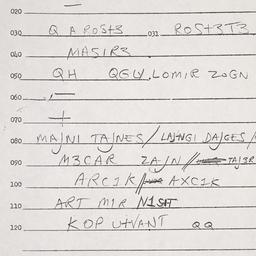 020 —
030 Q A POST3 031 ROST3T3
040 MASIR3
050 QH QGLV.LOMIR ZOGN
060 , —
070 +
080 MAJNI TAJNES / LAJNGI DAJGES /
090 M3CAR ZAJN // TAJ3R
100 ARC1K / AXC1K
110 ART MIR N1SHT
120 KOP UHVANT QQ